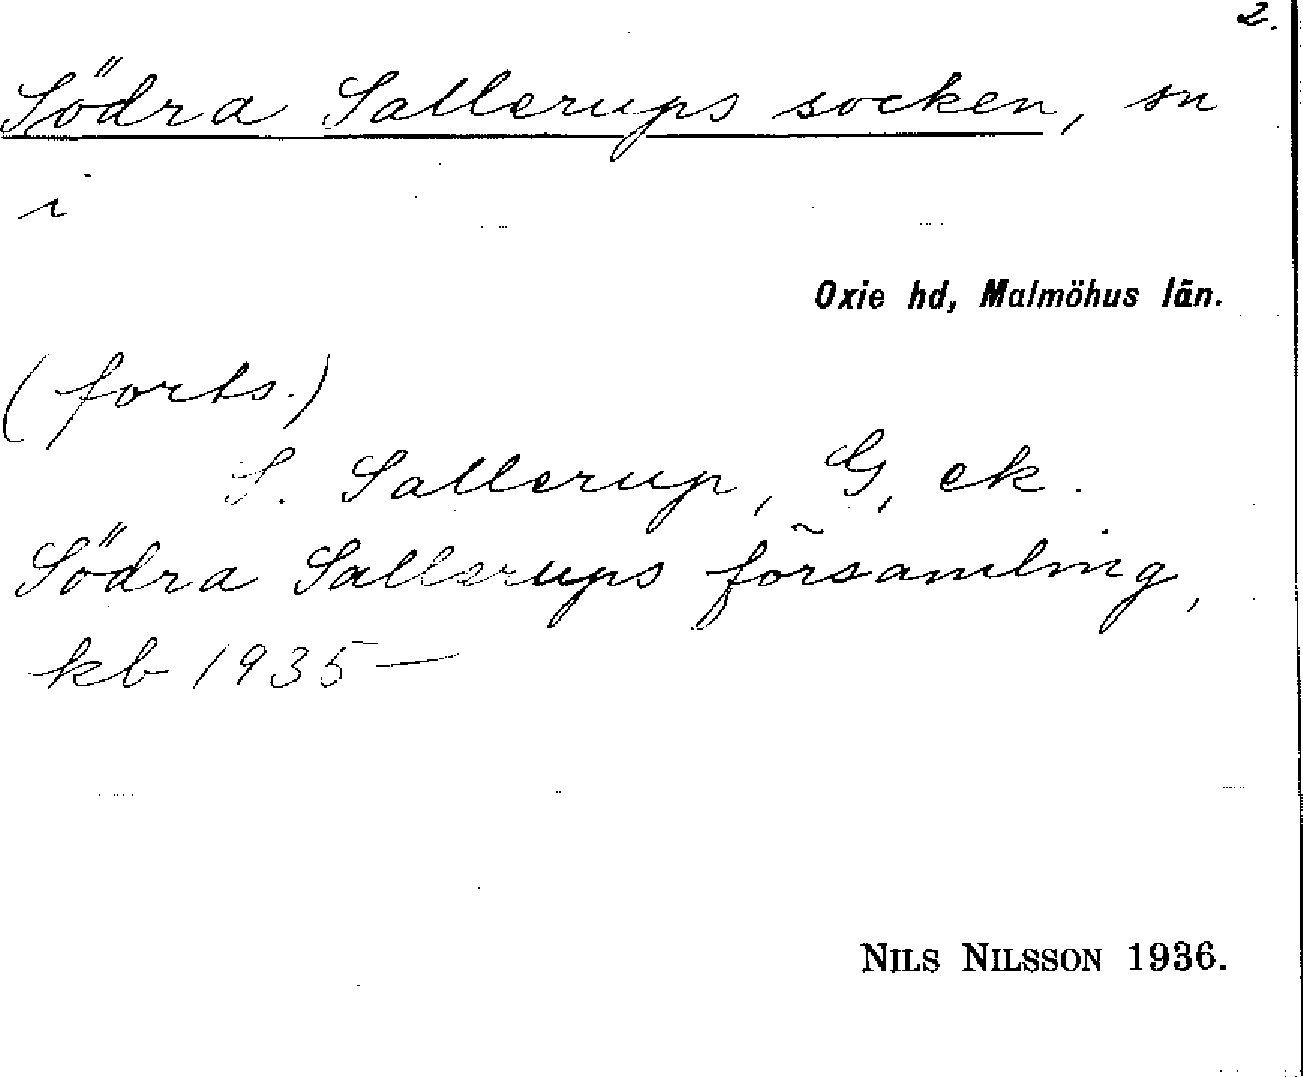 2.
Södra Sallerups socken, sn
i
Oxie hd, Malmöhus län.
(forts.)
S. Sallerup, G, ek.
Södra Sallerups församling,
kb 1935—
NILS NILSSON 1936.